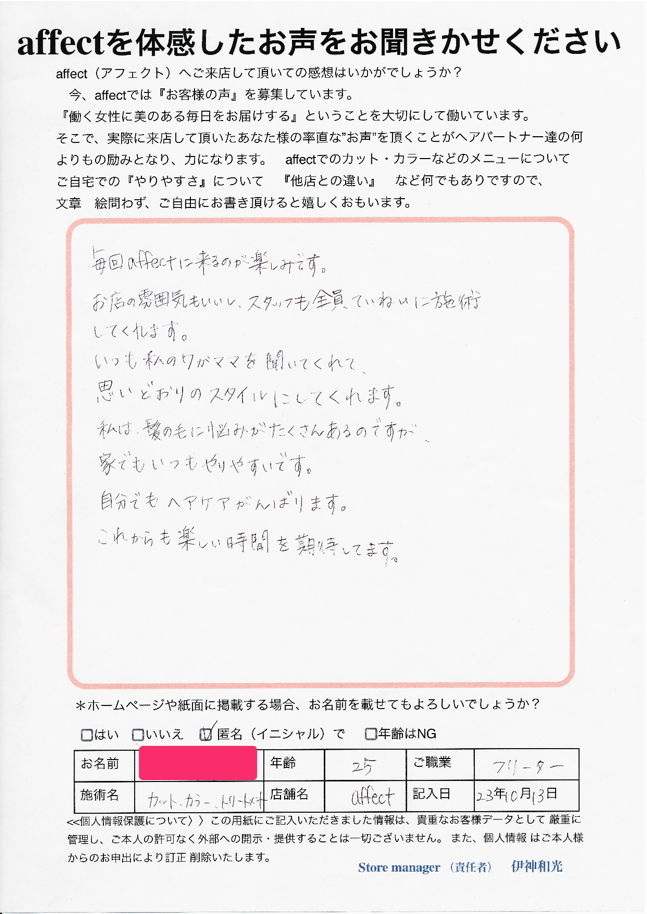 affectを体感したお声をお聞きかせください
affect（アフェクト）へご来店して頂いての感想はいかがでしょうか？
今、affectでは『お客様の声』を募集しています。
『働く女性に美のある毎日をお届けする』ということを大切にして働いています。
そこで、実際に来店して頂いたあなた様の率直な”お声”を頂くことがヘアパートナー達の何
よりもの励みとなり、力になります。　affectでのカット・カラーなどのメニューについて
ご自宅での『やりやすさ』について　『他店との違い』　など何でもありですので、
文章　絵問わず、ご自由にお書き頂けると嬉しくおもいます。
毎回affectに来るのが楽しみです。
お店の雰囲気もいいし、スタッフも全員ていねいに施術
してくれます。
いつも私のワガママを聞いてくれて、
思いどおりのスタイルにしてくれます。
私は、髪の毛に悩みがたくさんあるのですが、
家でもいつもやりやすいです。
自分でもヘアケアがんばります。
これからも楽しい時間を期待してます。
＊ホームページや紙面に掲載する場合、お名前を載せてもよろしいでしょうか？
はい　いいえ　匿名（イニシャル）で　年齢はNG
お名前　年齢　25　ご職業　フリーター
施術名　カット・カラー・トリートメント　店舗名　affect　記入日　23年10月13日
<<個人情報保護について〉〉この用紙にご記入いただきました情報は、貴重なお客様データとして 厳重に
管理し、ご本人の許可なく外部への開示・提供することは一切ございません。また、個人情報 はご本人様
からのお申出により訂正 削除いたします。
Store manager （責任者）　伊神和光